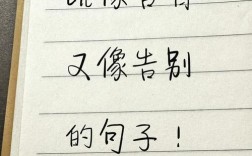 又像告别
的句子！